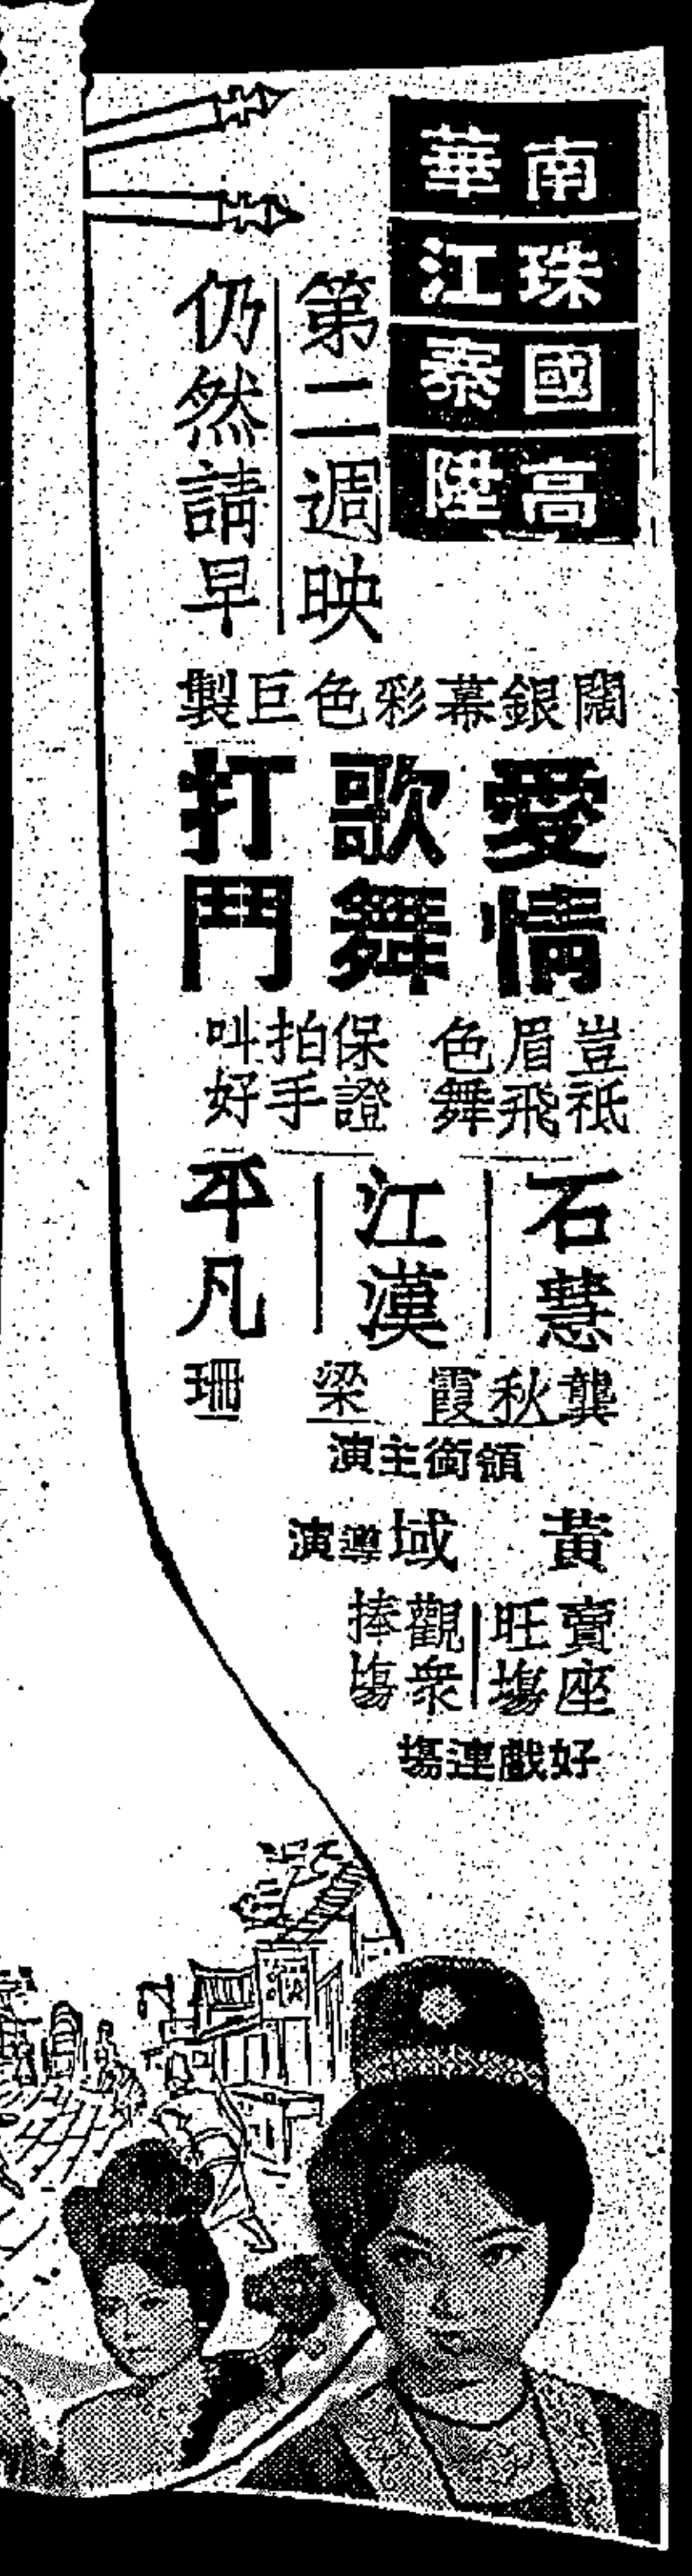 南華
珠江
國泰
高陞
第二週映
仍然請早
闊銀幕彩色巨製
愛情
歌舞
打鬥
豈祗眉飛色舞
保證拍手叫好
石慧
江漢
平凡
龔秋霞
梁珊
領銜主演
黃域導演
賣座旺塲
觀衆捧塲
好戲連塲